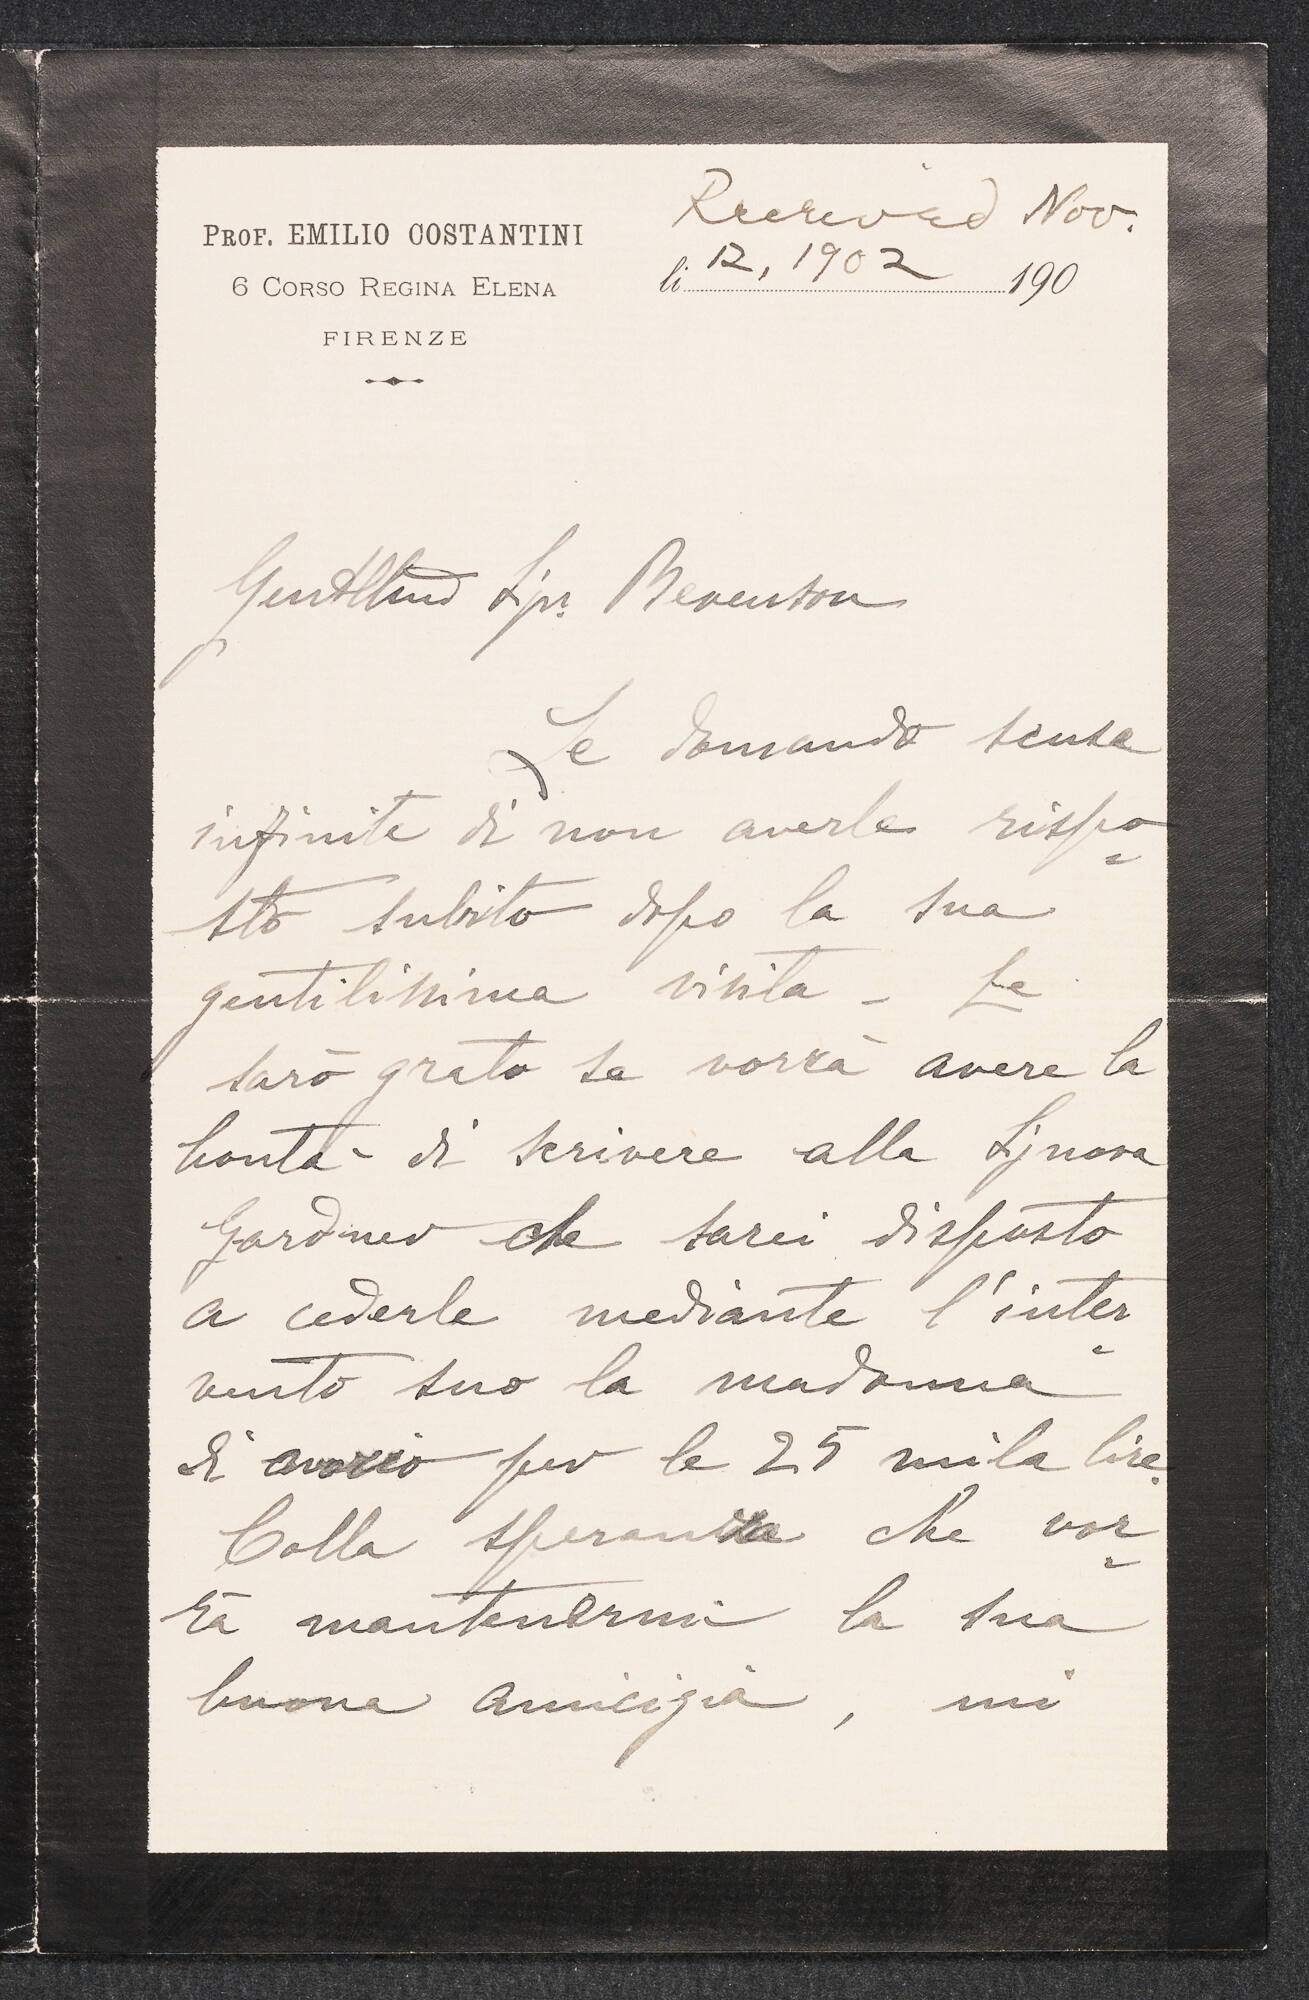 Prof. EMILIO COSTANTINI
6 Corso Regina Elena
FIRENZE
Received Nov.
li 12, 1902 190
Gentilmo Sigr. Berenson
Le domando scuse
infinite di non averle rispo
sto subito dopo la sua
gentilissima visita - Le
sarò grato se vorrà avere la
bontà di scrivere alla Signora
Gardner che sarei disposto
a cederle mediante l'inter
vento suo la madonna
di avorio per le 25 mila lire.
Colla speranza che vor
rà mantenermi la sua
buona amicigia, mi